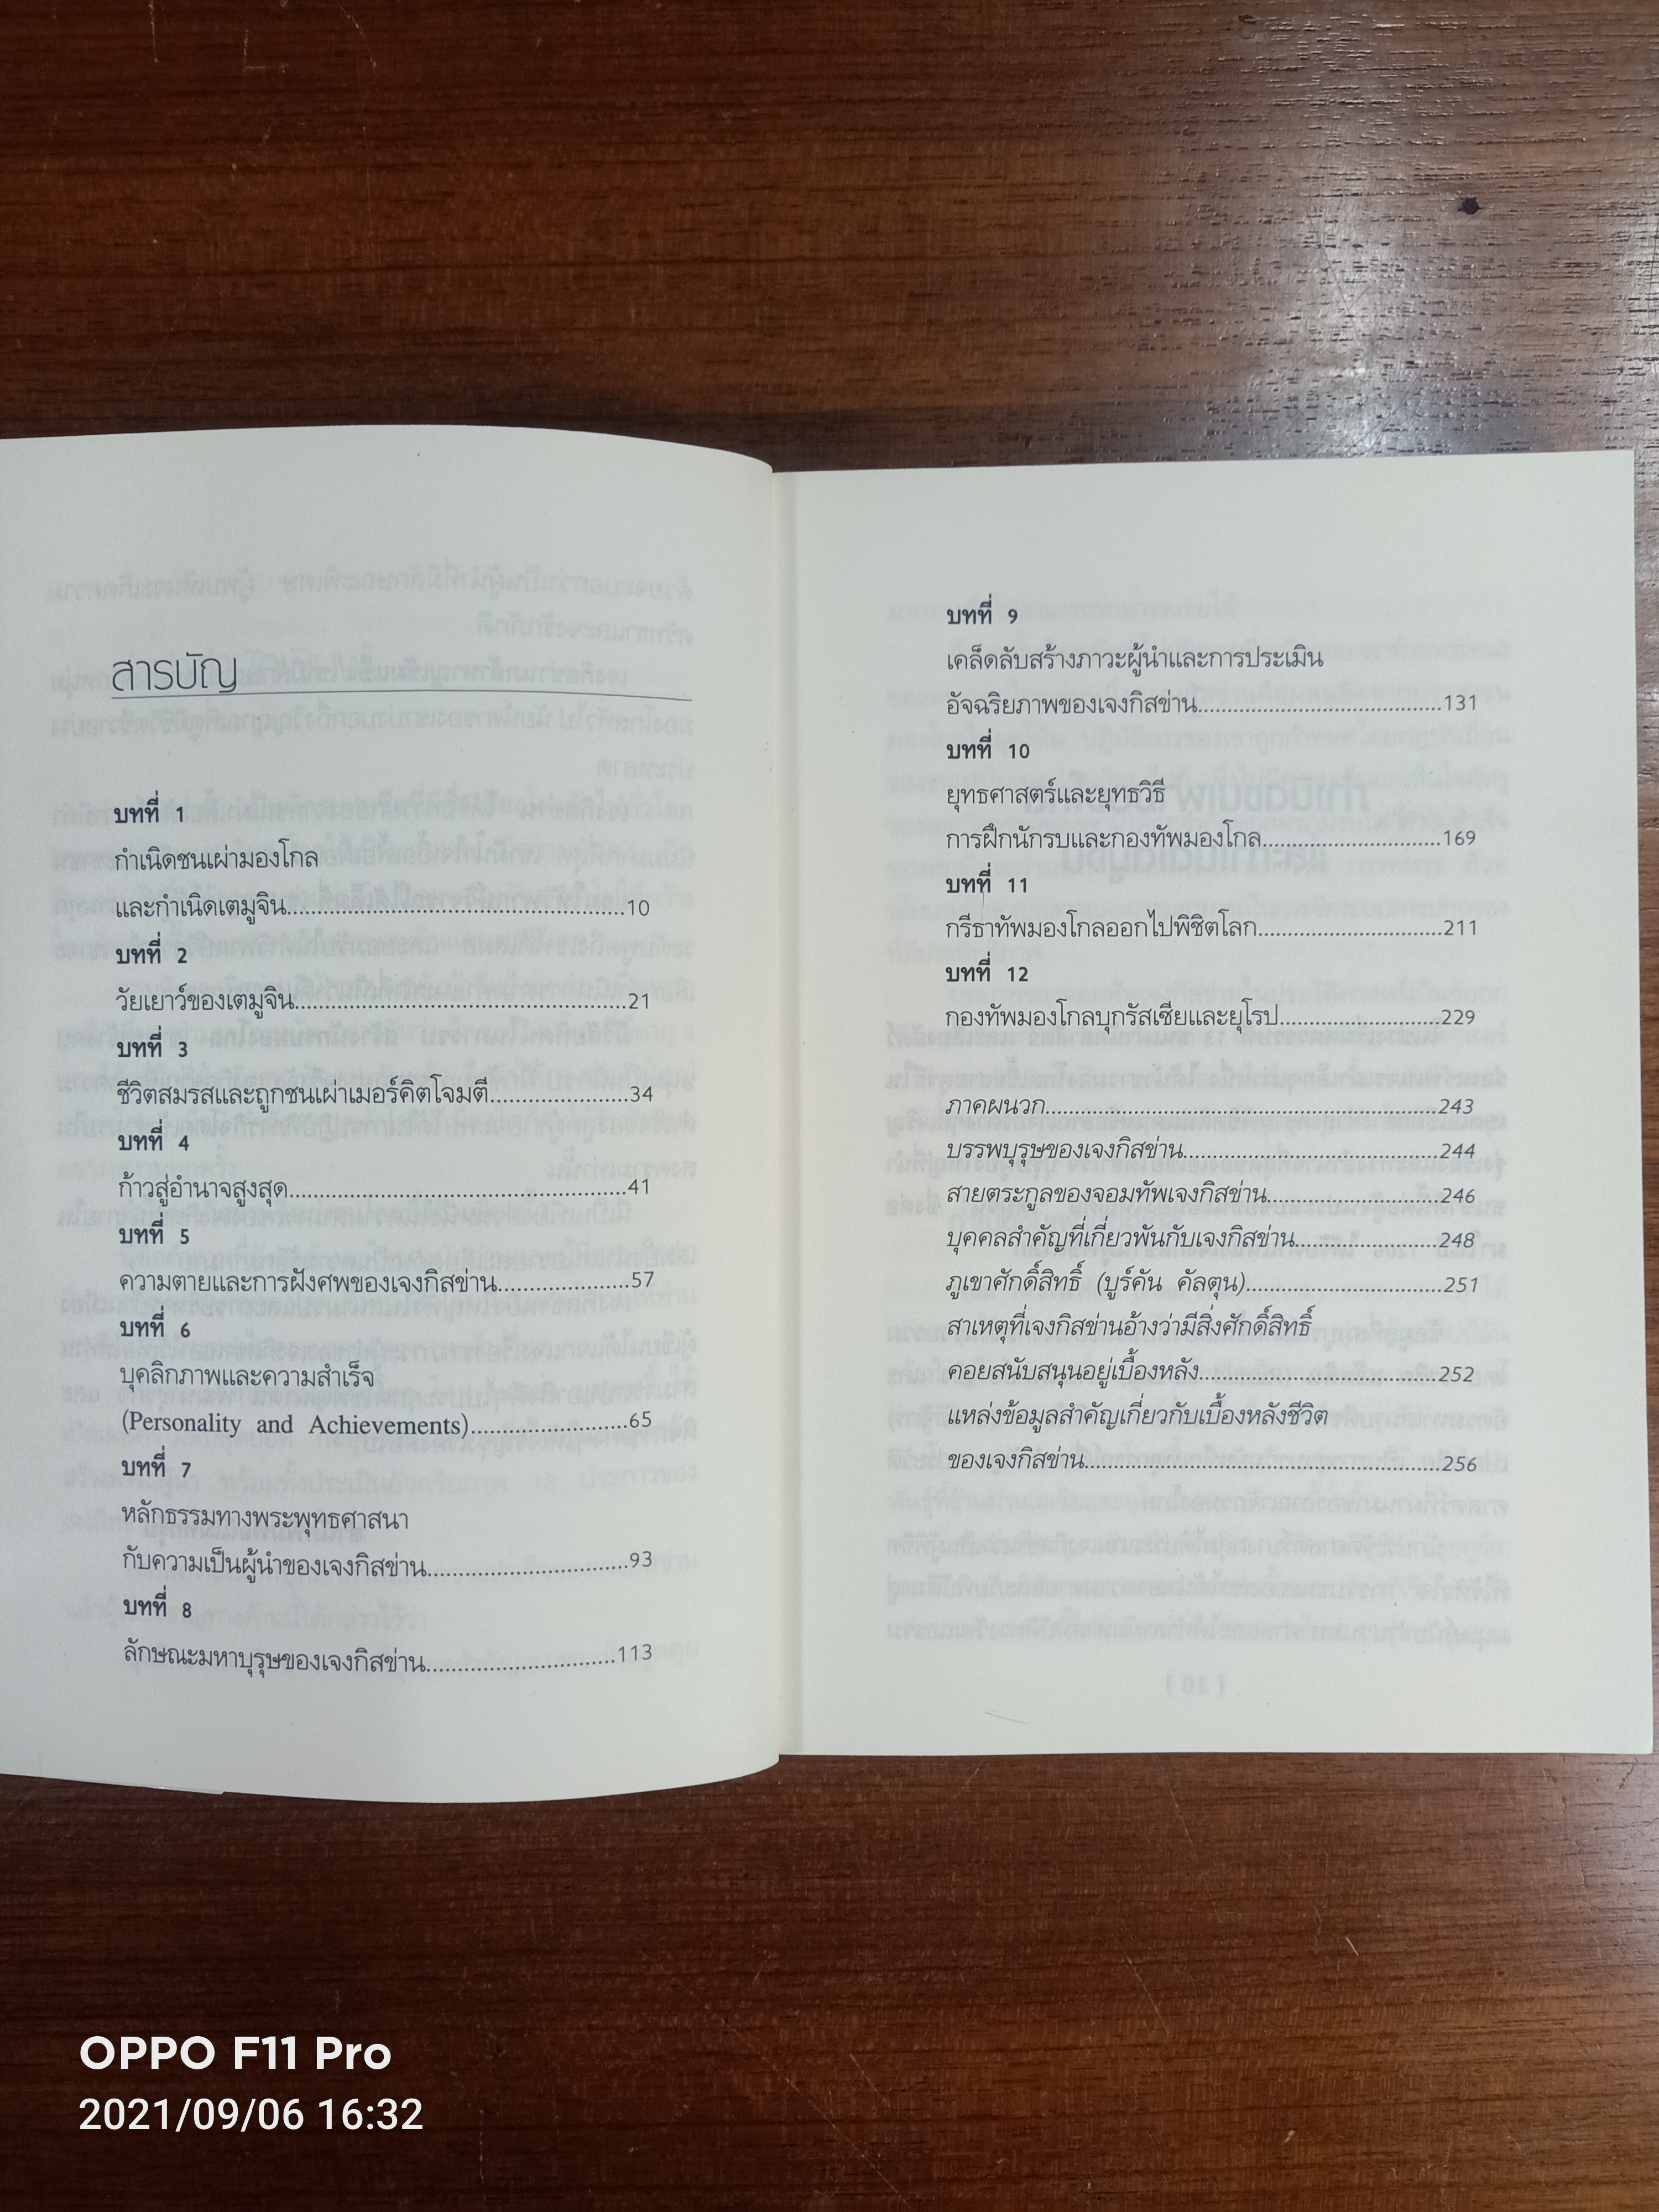 สารบัญ
บทที่ 1
กำเนิดชนเผ่ามองโกล
และกำเนิดเตมูจิน..........10
บทที่ 2
วัยเยาว์ของเตมูจิน..........21
บทที่ 3
ชีวิตสมรสและถูกชนเผ่าเมอร์คิตโจมตี..........34
บทที่ 4
ก้าวสู่อำนาจสูงสุด..........41
บทที่ 5
ความตายและการฝังศพของเจงกิสข่าน..........57
บทที่ 6
บุคลิกภาพและความสำเร็จ
(Personality and Achievements)..........65
บทที่ 7
หลักธรรมทางพระพุทธศาสนา
กับความเป็นผู้นำของเจงกิสข่าน..........93
บทที่ 8
ลักษณะมหาบุรุษของเจงกิสข่าน..........113
บทที่ 9
เคล็ดลับสร้างภาวะผู้นำและการประเมิน
อัจฉริยภาพของเจงกิสข่าน..........131
บทที่ 10
ยุทธศาสตร์และยุทธวิธี
การฝึกนักรบและกองทัพมองโกล..........169
บทที่ 11
กรีธาทัพมองโกลออกไปพิชิตโลก..........211
บทที่ 12
กองทัพมองโกลบุกรัสเซียและยุโรป..........229
ภาคผนวก..........243
บรรพบุรุษของเจงกิสข่าน..........244
สายตระกูลของจอมทัพเจงกิสข่าน..........246
บุคคลสำคัญที่เกี่ยวพันกับเจงกิสข่าน..........248
ภูเขาศักดิ์สิทธิ์ (บูร์คัน คัลตุน)..........251
สาเหตุที่เจงกิสข่านอ้างว่ามีสิ่งศักดิ์สิทธิ์
คอยสนับสนุนอยู่เบื้องหลัง..........252
แหล่งข้อมูลสำคัญเกี่ยวกับเบื้องหลังชีวิต
ของเจงกิสข่าน..........256
OPPO F11 Pro
2021/09/06 16:32